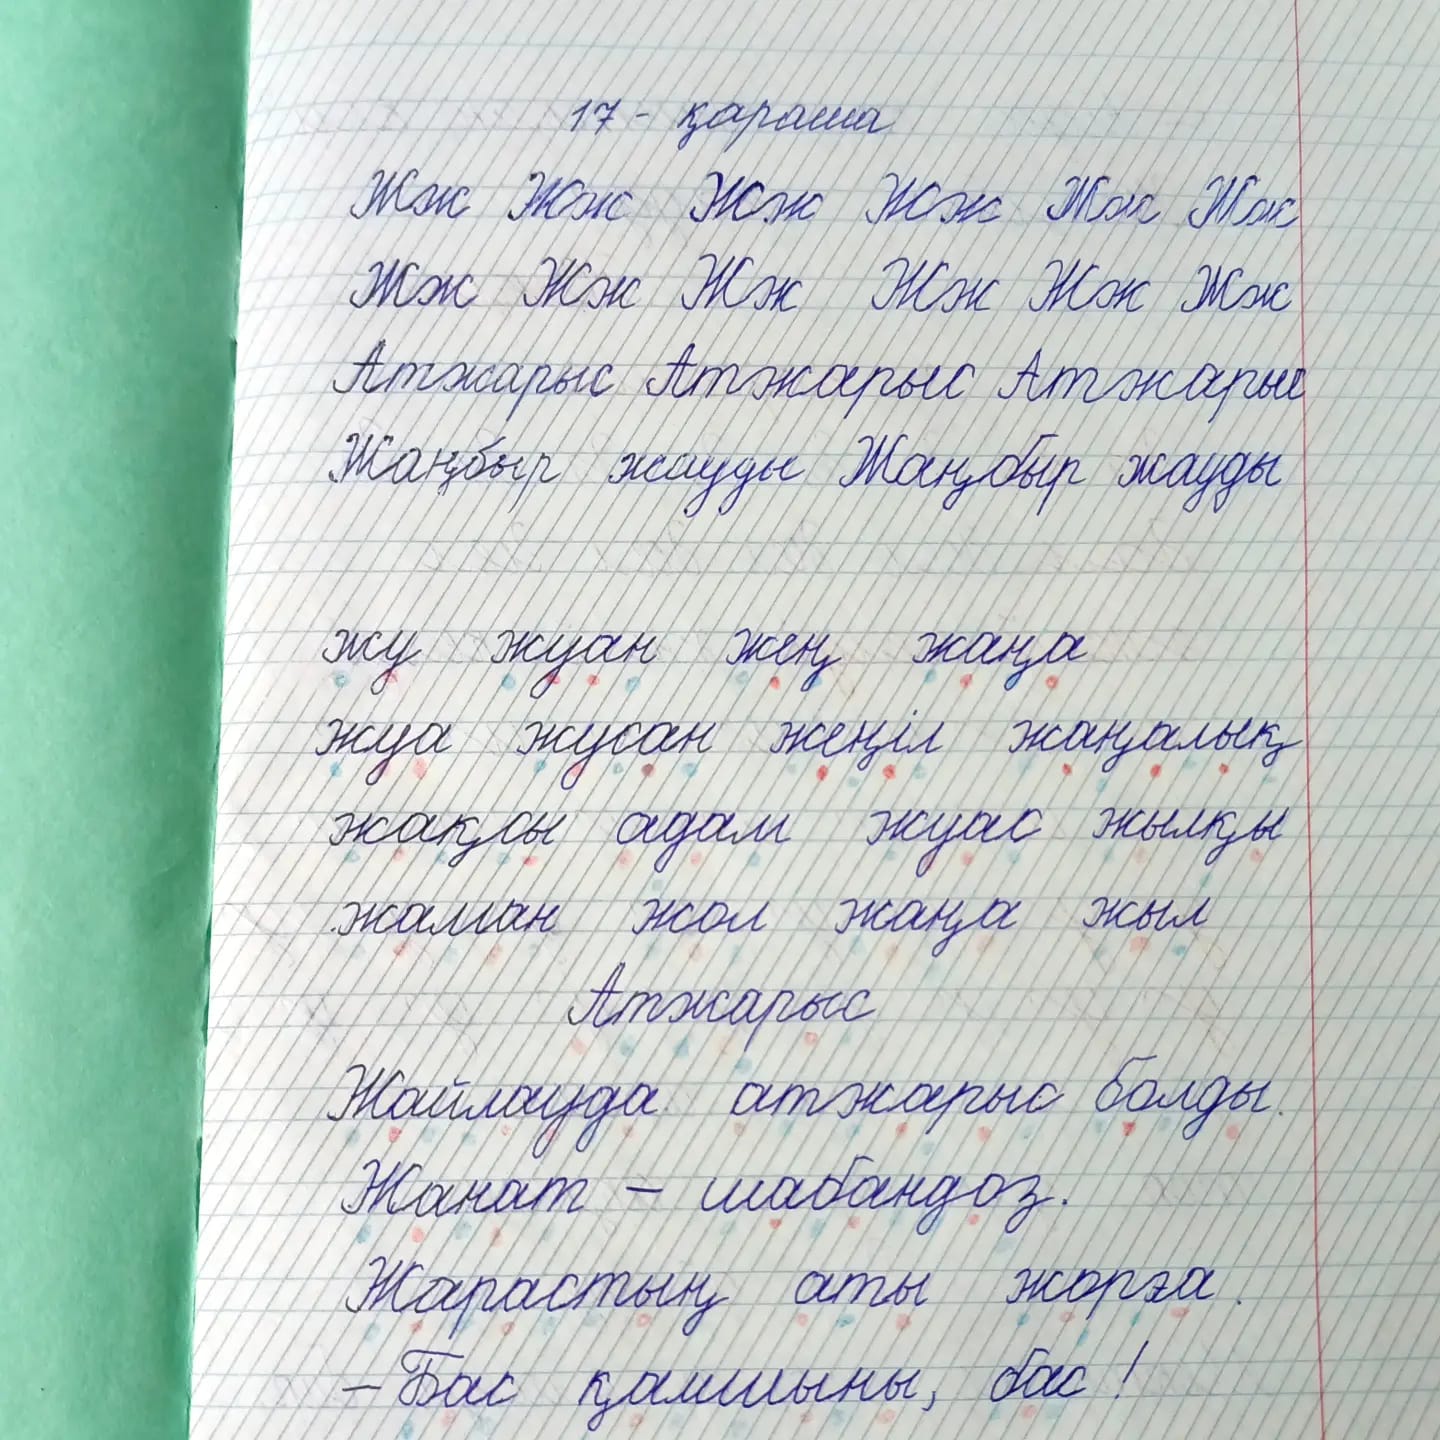 17 - қараша
Жж Жж Жж Жж Жж Жж
Жж Жж Жж Жж Жж Жж
Атжарыс Атжарыс Атжарыс
Жаңбыр жауды Жаңбыр жауды
жу жуан жең жаңа
жуа жусан жеңіл жаңалық
жақсы адам жуас жылқы
жаман жол жаңа жыл
Атжарыс
Жайлауда атжарыс болды.
Жанат – шабандоз.
Жарастың аты жорға.
– Бас қамшыны, бас!